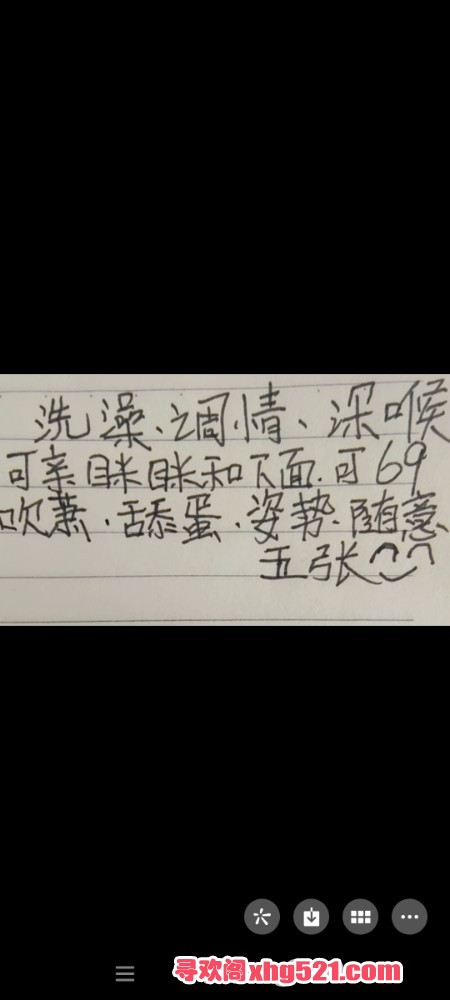 洗澡、调情、深喉
可亲眯眯和下面.可69
吹萧.舔蛋.姿势.随意
五张
寻欢阁xhg521.com